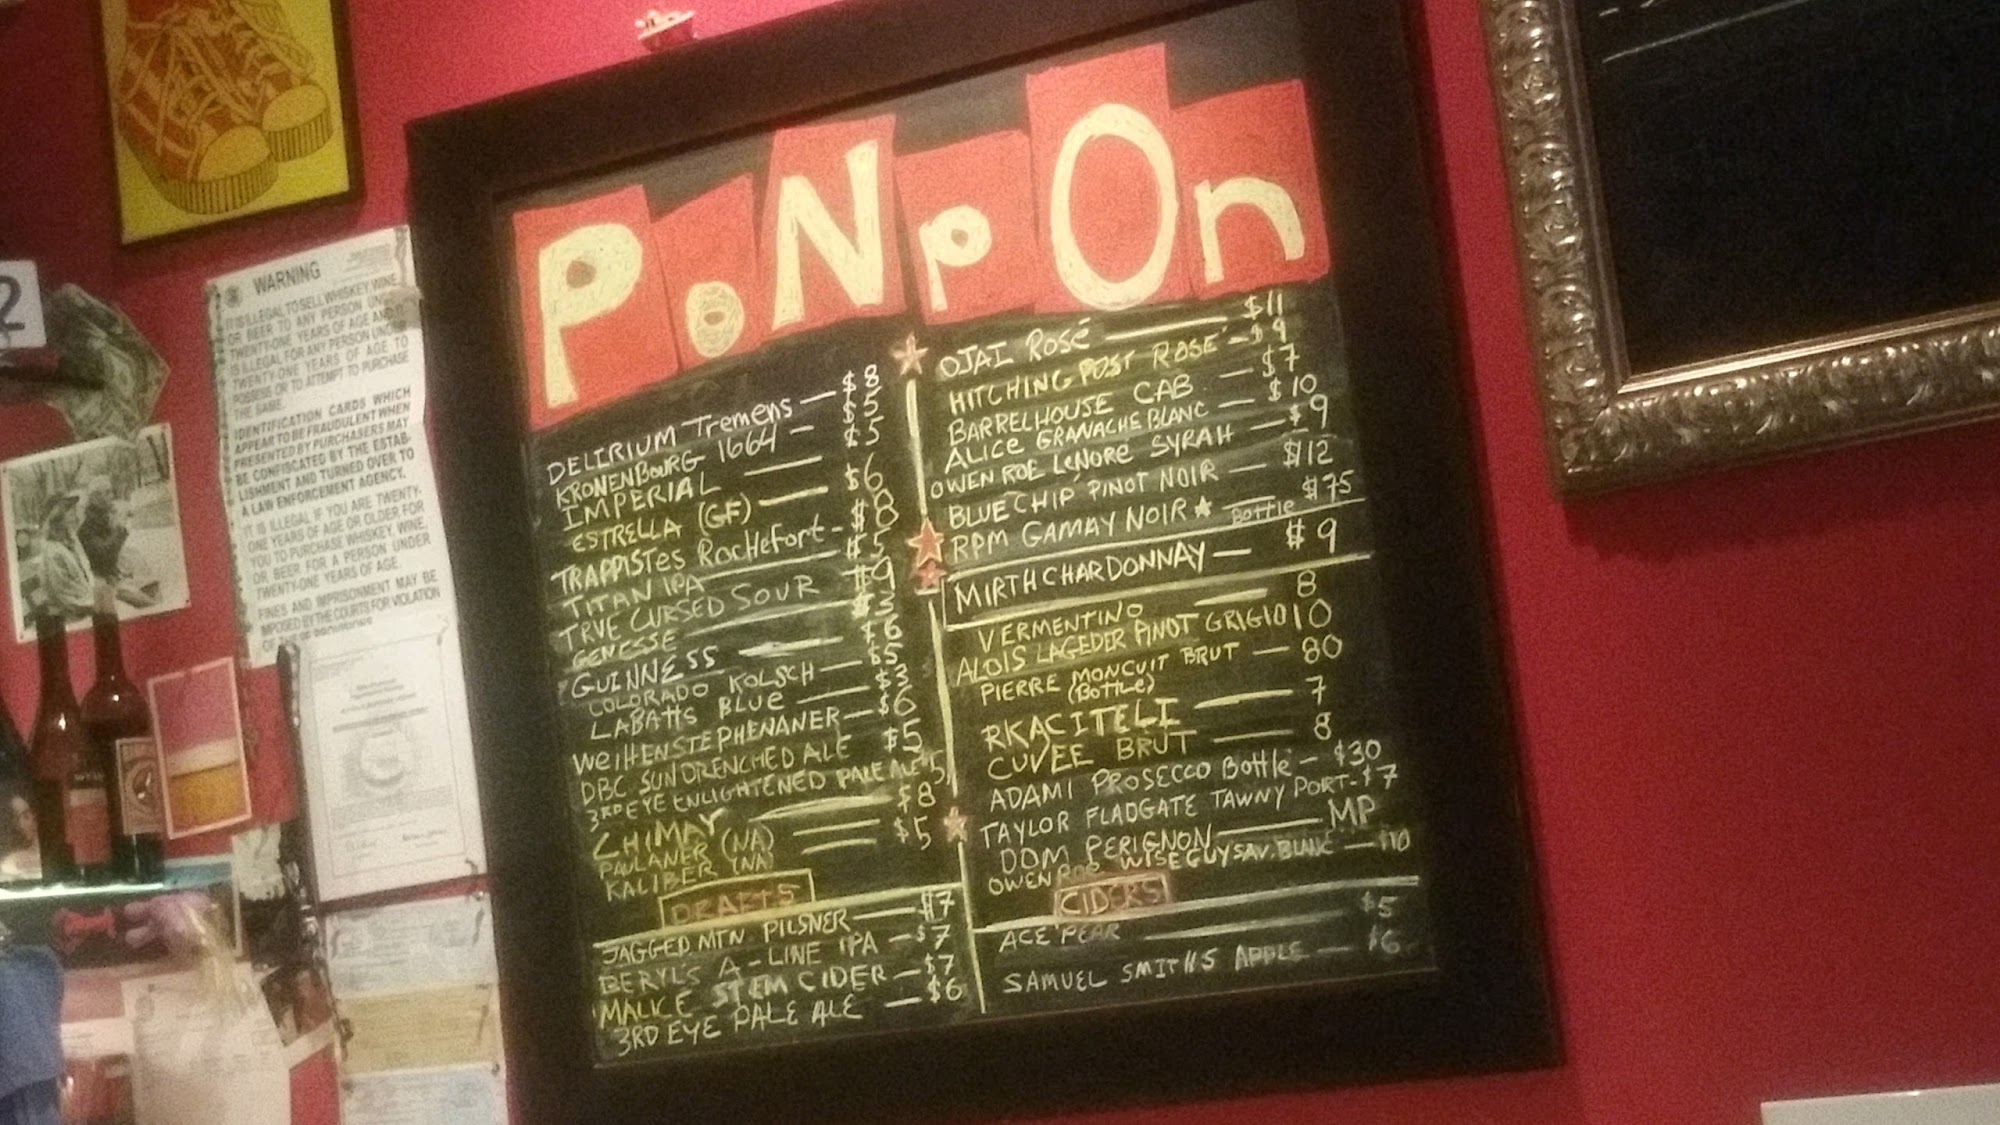 PoNpOn
DELIRIUM Tremens — $8
KRONENBOURG 1664 — $5
IMPERIAL — $5
ESTRELLA (GF) — $6
TRAPPISTES Rochefort - $8
TITAN IPA — $5
TRVE CURSED SOUR $9
GENESSE — $3
GUINNESS — $6
COLORADO KOLSCH — $5
LABATTS BLUE — $3
WEIHENSTEPHENANER — $6
DBC SUNDRENCHED ALE $5
3RD EYE ENLIGHTENED PALE ALE $5
CHIMAY — $8
PAULANER (NA) — $5
KALIBER (NA)
DRAFTS
JAGGED MTN PILSNER — $7
BERYL'S A-LINE IPA - $7
MALICE STEM CIDER - $7
3RD EYE PALE ALE — $6
OJAI ROSÉ — $11
HITCHING POST ROSÉ - $9
BARRELHOUSE CAB — $7
ALICE GRANACHE BLANC — $10
OWEN ROE LENORE SYRAH — $9
BLUE CHIP PINOT NOIR — $12
RPM GAMAY NOIR ★ — Bottle $75
MIRTH CHARDONNAY — $9
VERMENTINO — 8
ALOIS LAGEDER PINOT GRIGIO 10
PIERRE MONCUIT BRUT — 80
(Bottle)
RKACITELI — 7
CUVEE BRUT — 8
ADAMI PROSECCO Bottle - $30
TAYLOR FLADGATE TAWNY PORT - $7
DOM PERIGNON — MP
OWEN ROE WISEGUY SAV. BLANC — $10
CIDERS
ACE PEAR — $5
SAMUEL SMITHS APPLE — $6
2
WARNING
IT IS ILLEGAL TO SELL WHISKEY, WINE
OR BEER TO ANY PERSON UNDER
TWENTY-ONE YEARS OF AGE AND IT
IS ILLEGAL FOR ANY PERSON UNDER
TWENTY-ONE YEARS OF AGE TO
POSSESS OR TO ATTEMPT TO PURCHASE
THE SAME.
IDENTIFICATION CARDS WHICH
APPEAR TO BE FRAUDULENT WHEN
PRESENTED BY PURCHASERS MAY
BE CONFISCATED BY THE ESTAB-
LISHMENT AND TURNED OVER TO
A LAW ENFORCEMENT AGENCY.
IT IS ILLEGAL IF YOU ARE TWENTY-
ONE YEARS OF AGE OR OLDER FOR
YOU TO PURCHASE WHISKEY, WINE,
OR BEER FOR A PERSON UNDER
TWENTY-ONE YEARS OF AGE.
FINES AND IMPRISONMENT MAY BE
IMPOSED BY THE COURTS FOR VIOLATION